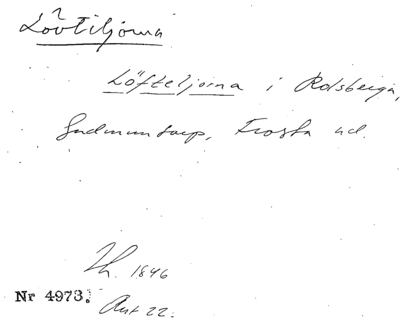 ?
Lövtiljorna
Löfteljorna i Rolsberga,
Gudmuntorp, Frosta hd.
Th. 1846
Nr 4973. Ant 22.